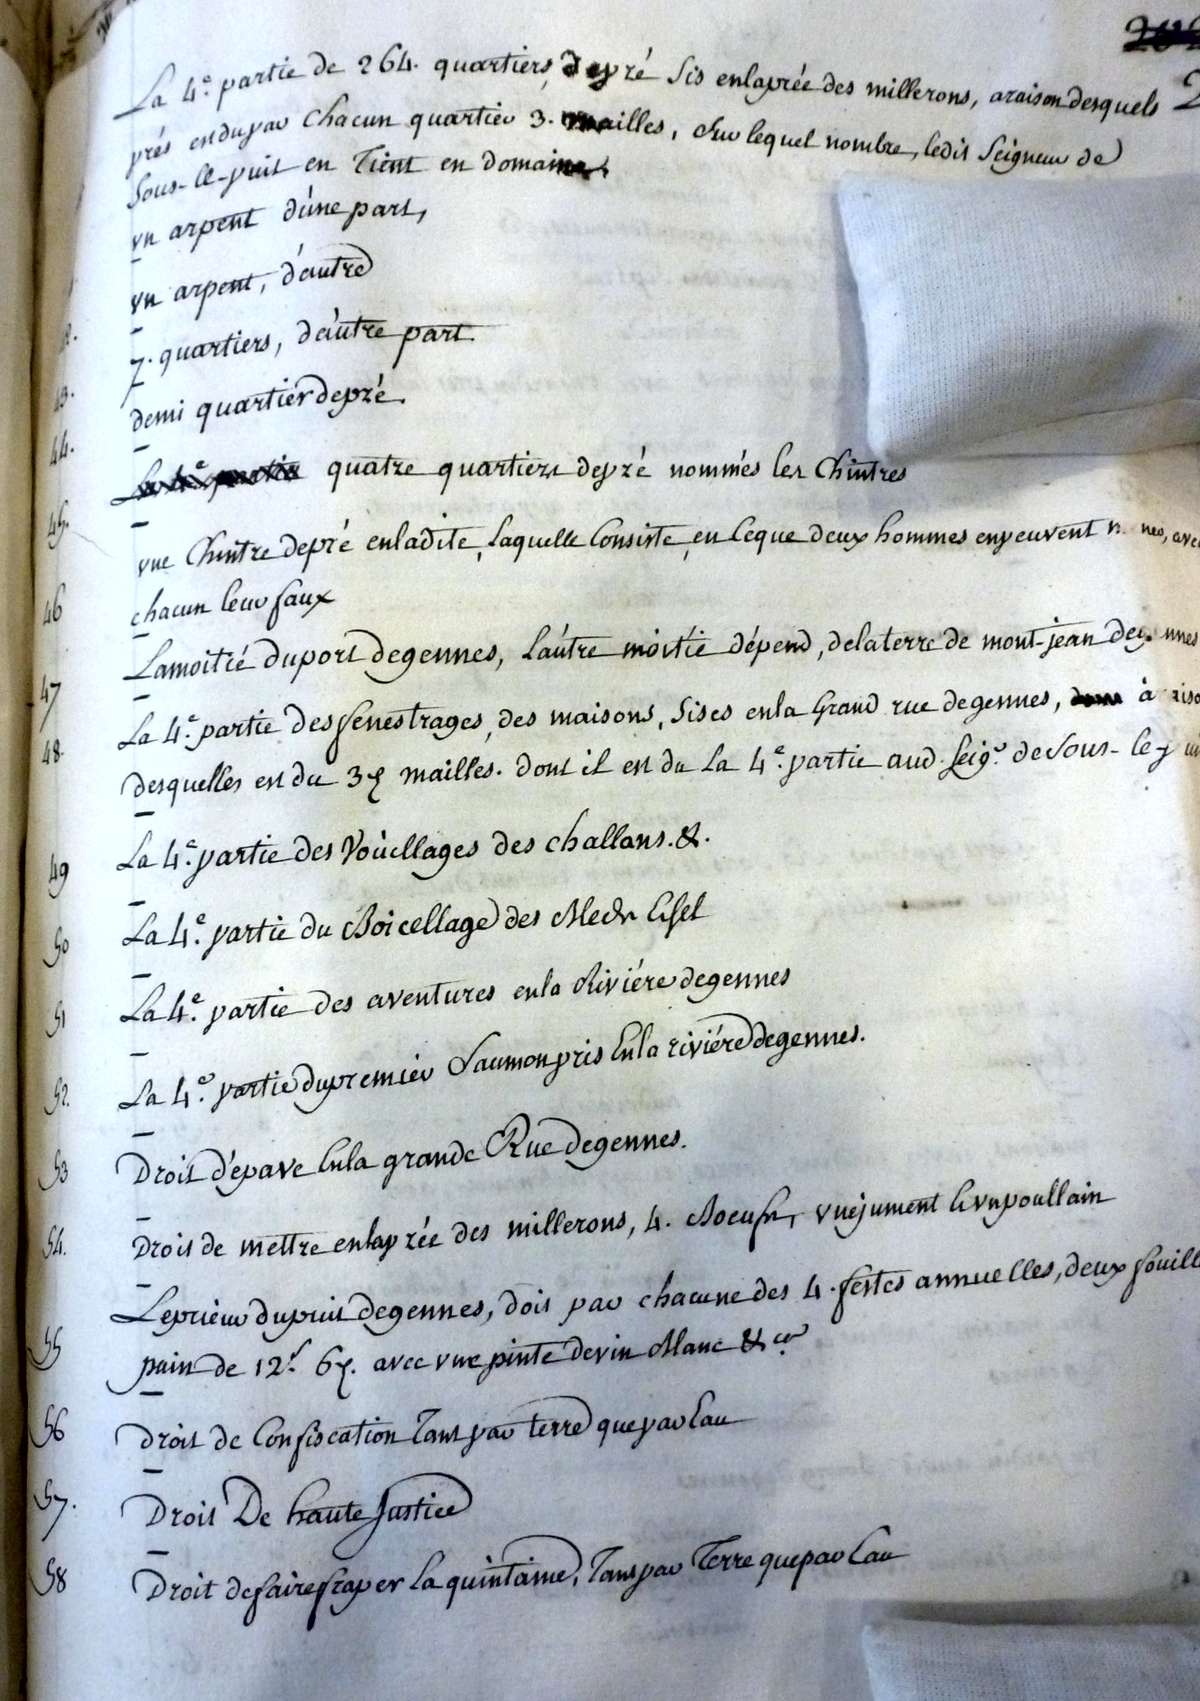 La 4.e partie de 264. quartiers de pré sis en la prée des millerons, a raison desquels
prés en du par chacun quartier 3. mailles, sur lequel nombre, ledit Seigneur de
Sous-le-puit en Tient en domaine
un arpent d'une part,
un arpent, d'autre
7. quartiers, d'autre part
43. demi quartier de pré.
44. quatre quartiers de pré nommés les Chintres
45. une Chintre de pré en ladite, Laquelle Consiste, en Ceque deux hommes en peuvent
chacun leur faux
46 La moitié du port degennes, L'autre moitié dépend, de la terre de mont-jean
47 La 4.e partie des fenestrages, des maisons, sises en la Grand rue degennes, à
48. desquelles en du 3 mailles. dont il en du La 4.e partie aud. seig.r de Sous-le-
49 La 4.e partie des Voüellages des challans. &.
50 La 4.e partie du Boicellage des
51 La 4.e partie des aventures en la Riviére degennes
52. La 4.e partie du premier Saumon pris En la riviére degennes.
53 Droit d'épave En la grande Rue degennes.
54. Droit de mettre en la prée des millerons, 4. Boeufs, une jument & un poullain
Le prieur du prieuré degennes, doit par chacune des 4. festes annuelles, deux
55 pain de 12.s 6 avec une pinte de vin Blanc &
56 Droit de Confiscation Tant par terre que par Eau
57. Droit De haute Justice
58 Droit de faire fraper La quintaine, Tant par Terre que par Eau